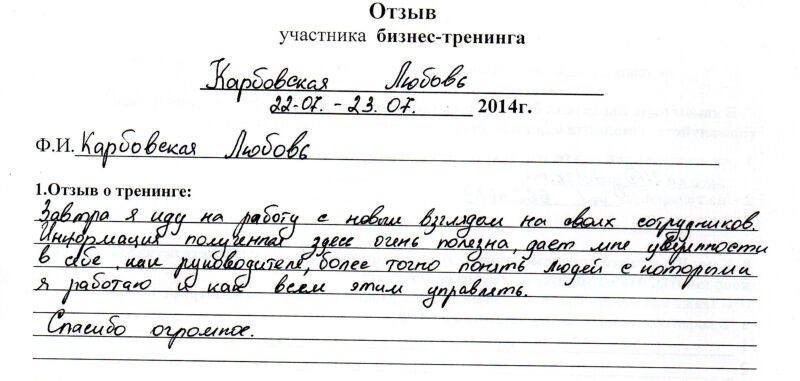 Отзыв
участника бизнес-тренинга
Карбовская Любовь
22-07. - 23. 07. 2014г.
Ф.И. Карбовская Любовь
1.Отзыв о тренинге:
Завтра я иду на работу с новым взглядом на своих сотрудников.
Информация полученная здесь очень полезна, дает мне уверенности
в себе, как руководителя, более точно понять людей с которыми
я работаю и как всем этим управлять.
Спасибо огромное.